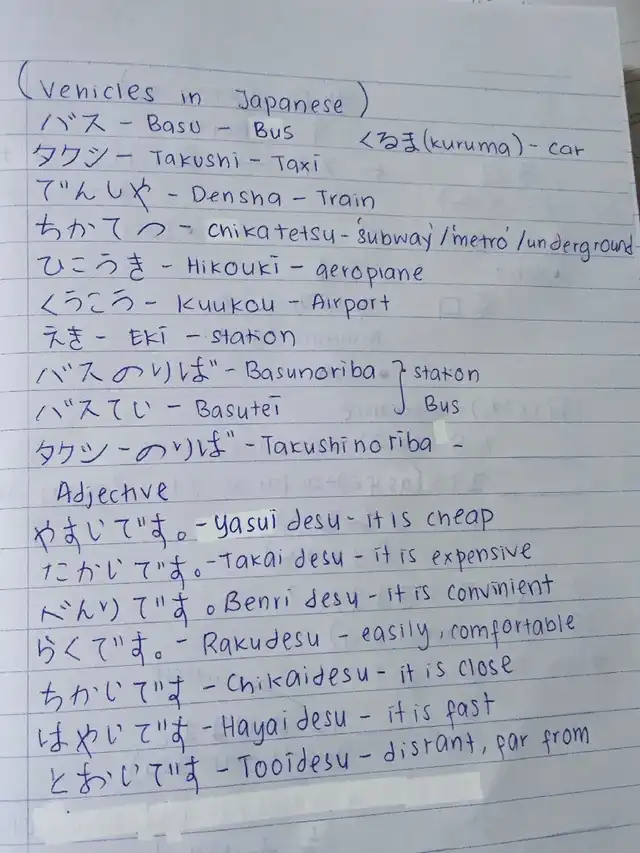 (Vehicles in Japanese)
バス - Basu - Bus
くるま(kuruma) - car
タクシー - Takushi - Taxi
でんしゃ - Densha - Train
ちかてつ - Chikatetsu - 'subway'/'metro'/underground
ひこうき - Hikouki - aeroplane
くうこう - Kuukou - Airport
えき - Eki - station
バスのりば - Basunoriba } station
バスてい - Basutei } Bus
タクシーのりば - Takushinoriba -
Adjective
やすいです。- Yasui desu - it is cheap
たかいです。- Takai desu - it is expensive
べんりです。Benri desu - it is convinient
らくです。- Rakudesu - easily, comfortable
ちかいです - Chikaidesu - it is close
はやいです - Hayai desu - it is fast
とおいです - Tooidesu - distant, far from